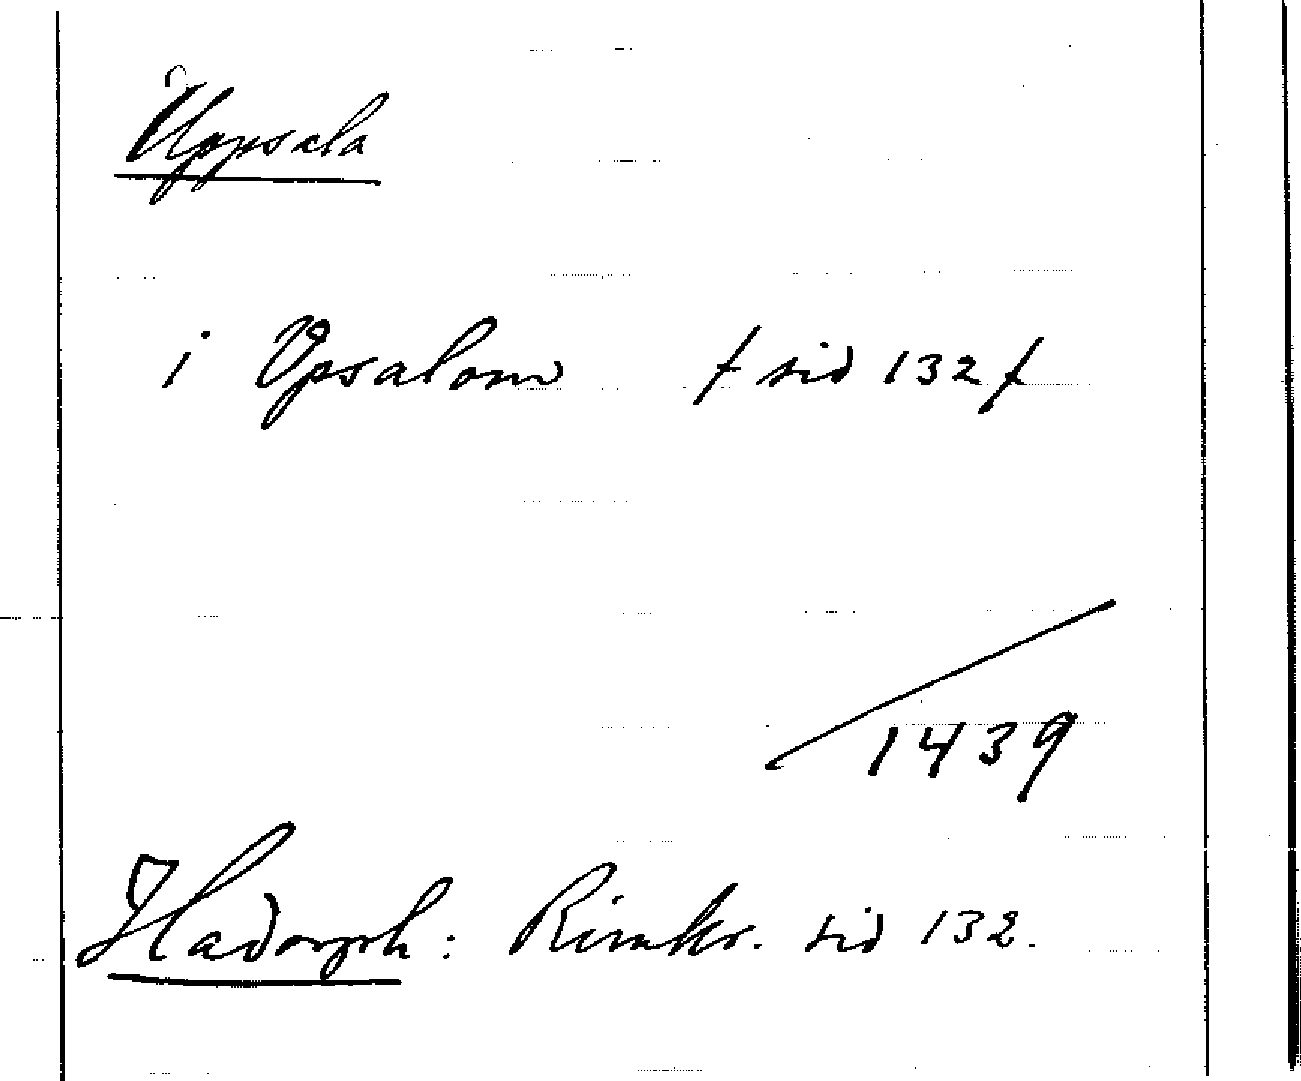 Uppsala
i Vpsalom / sid 132 /
1439
Hadorph: Rimkr. sid 132.